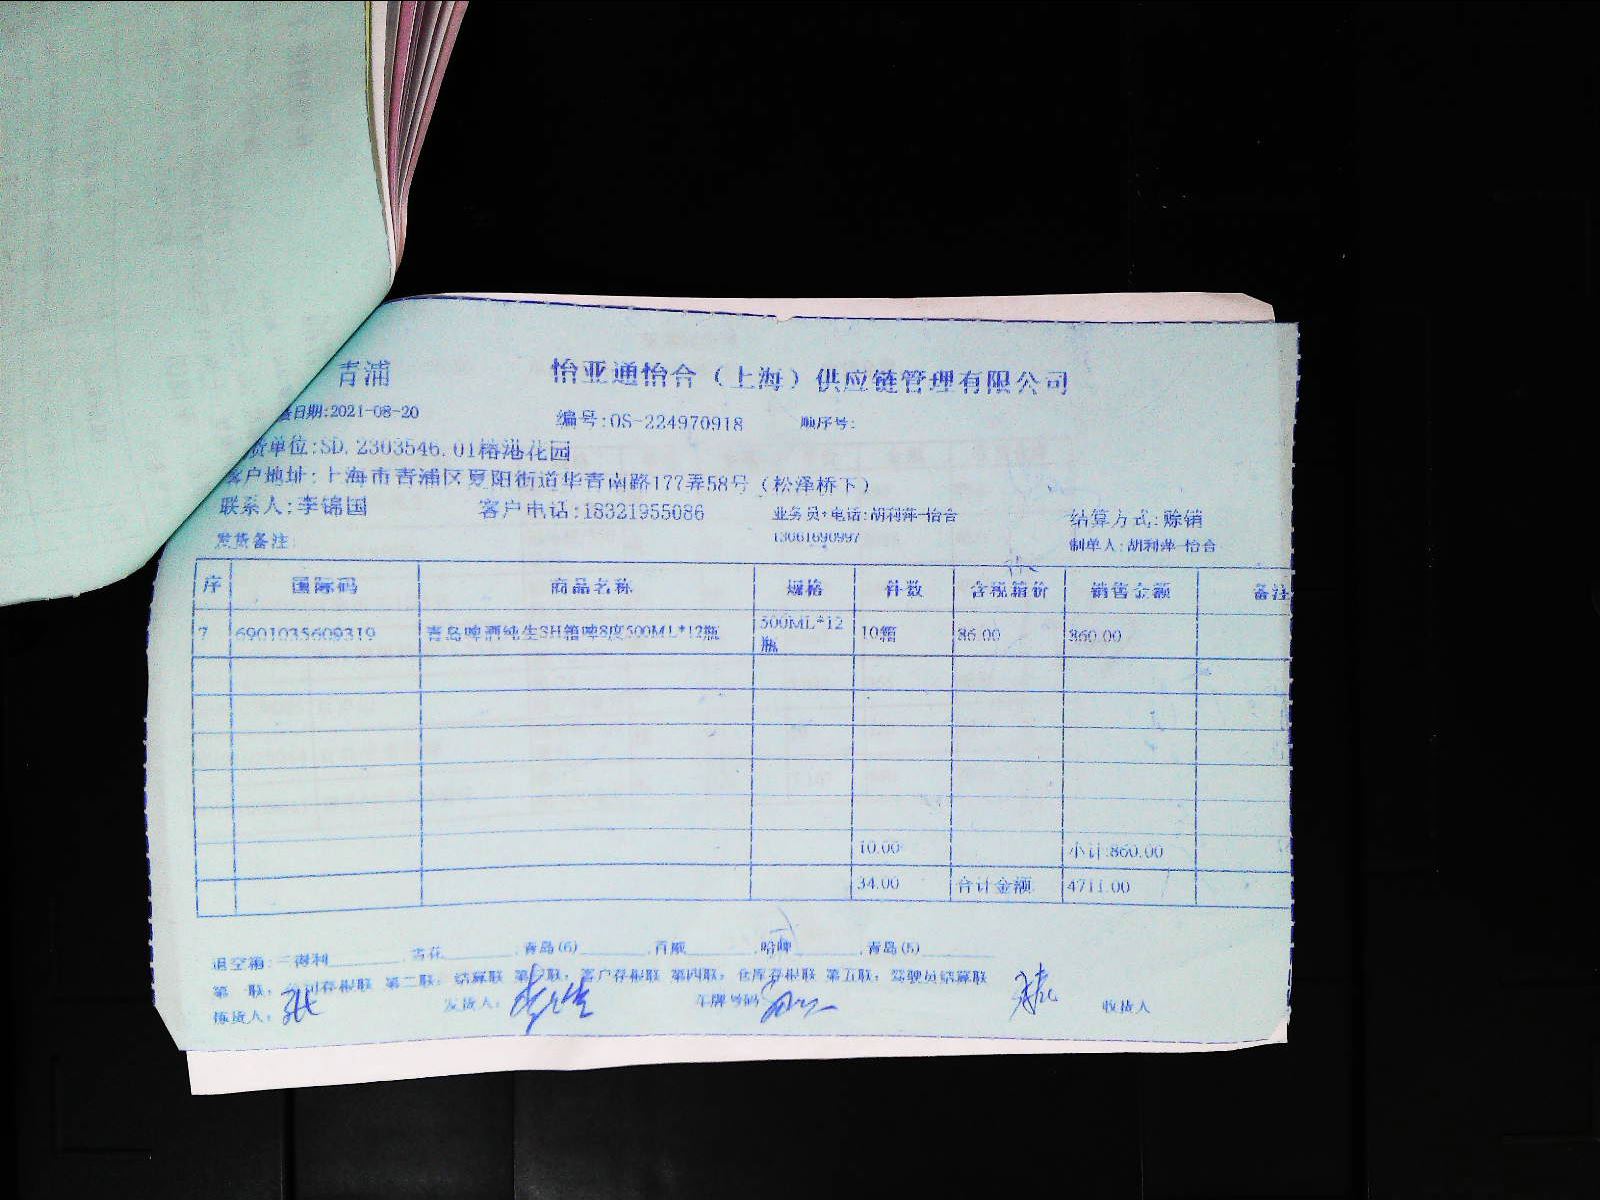 青浦 怡亚通怡合（上海）供应链管理有限公司
日期:2021-08-20 编号:OS-224970918 顺序号:
货单位:SD.2303546.01榕港花园
客户地址:上海市青浦区夏阳街道华青南路177弄58号（松泽桥下）
联系人:李锦国 客户电话:18321955086 业务员+电话:胡利萍-怡合 结算方式:赊销
发货备注: 13061690997 制单人:胡利萍-怡合
序 国际码 商品名称 规格 件数 含税箱价 销售金额 备注
7 6901035609319 青岛啤酒纯生SH箱啤8度500ML*12瓶 500ML*12瓶 10箱 86.00 860.00
10.00 小计:860.00
34.00 合计金额 4711.00
退空箱:三得利______.雪花______.青岛(6)______.百威______.哈啤______.青岛(5)
第一联: 公司存根联 第二联: 结算联 第三联: 客户存根联 第四联: 仓库存根联 第五联: 驾驶员结算联
拣货人: 发货人: 车牌号码 收货人